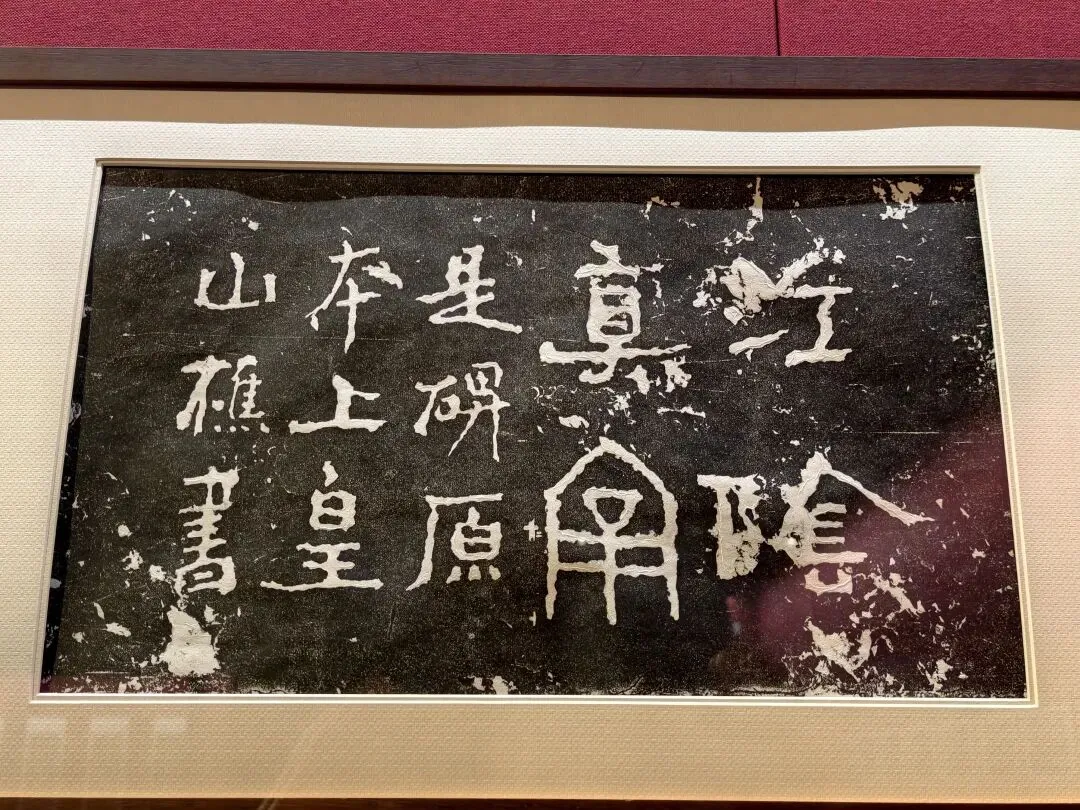 江陰
真宰
是碑原
本上皇
山樵書